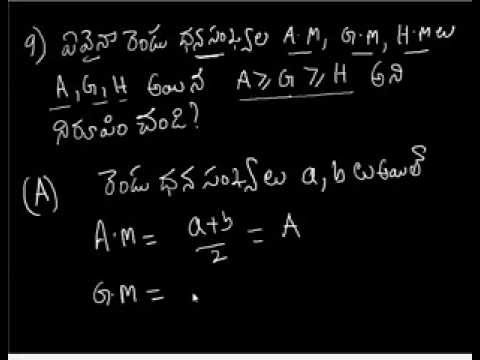 9) ఏవైనా రెండు ధన సంఖ్యల A.M, G.M, H.M లు
A, G, H అయినే A ≥ G ≥ H అని
నిరూపించండి?
(A) రెండు ధన సంఖ్యలు a, b లు అయితే
A.M = a+b/2 = A
G.M =